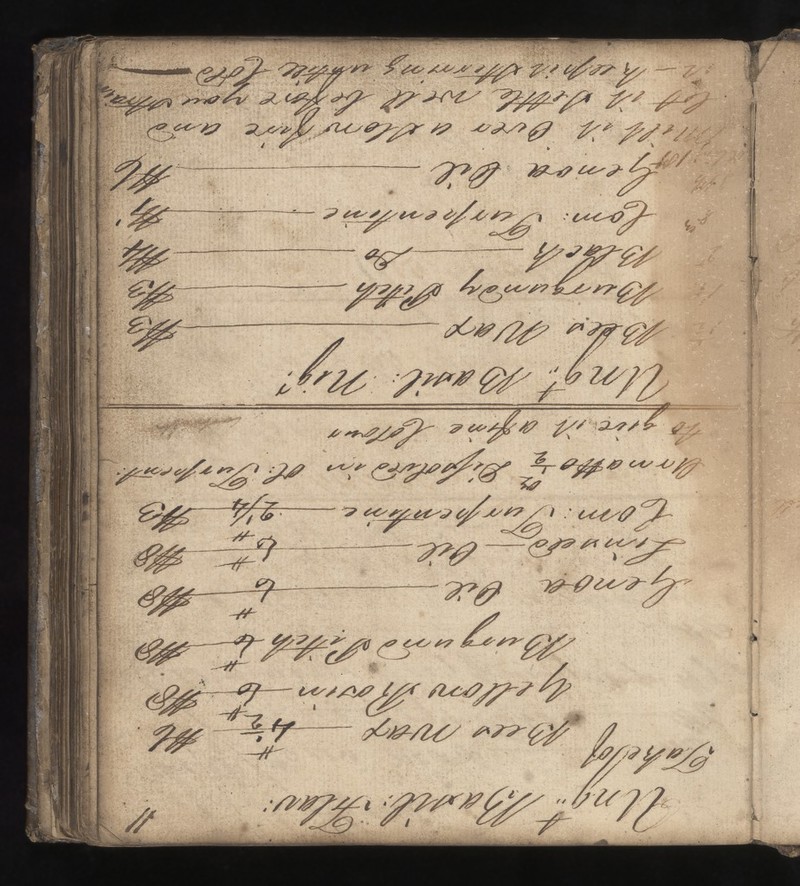 Ung:t Basil: Flav: 11
Take of
Bees Wax — ℔ 4½ — ℔6
Yellow Rosin — ℔ 6 — ℔8
Burgund Pitch — ℔ 6 — ℔8
Genoa Oil — ℔ 6 — ℔8
Linseed — Oil — ℔ 6 — ℔8
Com: Turpentine — ℔ 2¼ — ℔3
Annatto oz ½ Dissolved in Ol: Turpent:
to give it a fine Colour
Ung:t Basil: Nig:
Bees Wax — ℔3
Burgundy Pitch — ℔3
Black — Do — ℔4
Com: Turpentine — ℔1
Genoa Oil — ℔6
Melt it over a slow fire and
let it settle well before you strain
it — keep it stirring untill Cold